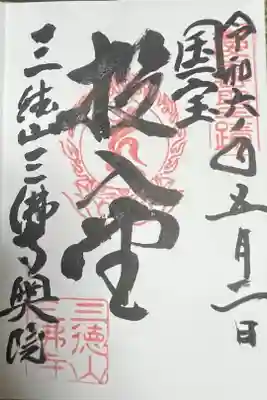 令和六年五月二日
国宝
投入堂
三徳山三佛寺奥院
三徳山